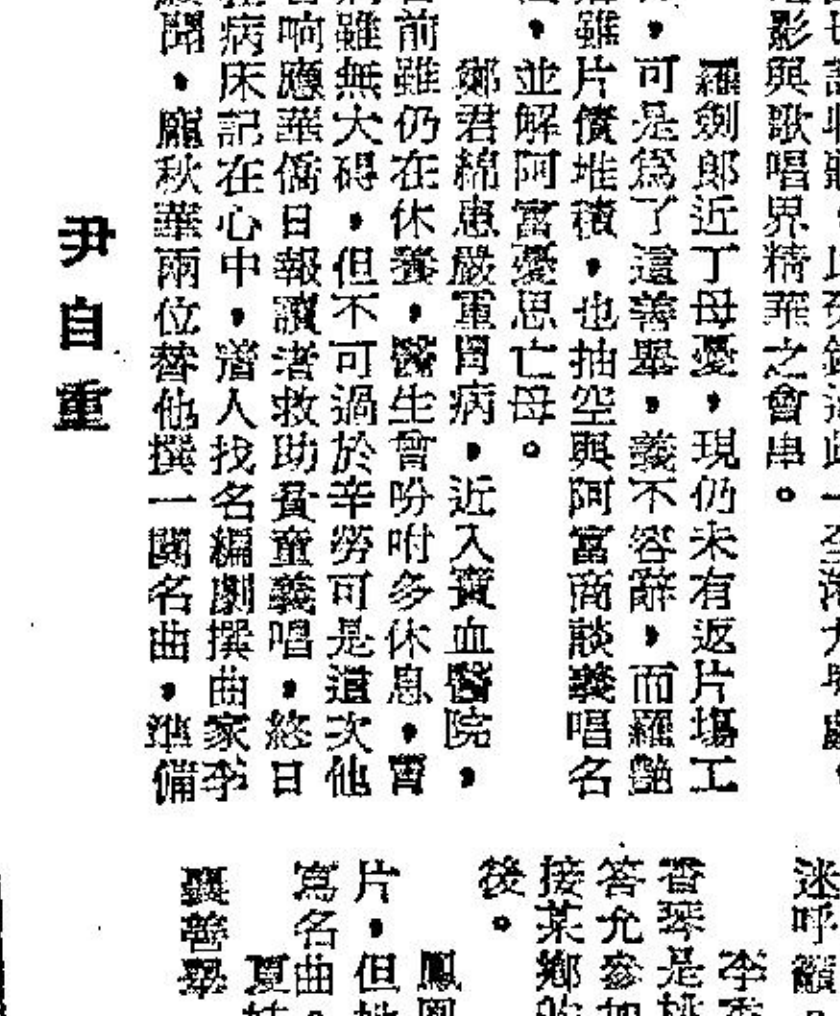 影與歌唱界精華之會串。
羅劍郎近丁母憂，現仍未有返片場工
，可是爲了這善舉，義不容辭，而羅艷
雖片債堆積，也抽空與阿富商談義唱名
，並解阿富憂思亡母。
鄭君綿患嚴重胃病，近入寶血醫院，
前雖仍在休養，醫生曾吩咐多休息，胃
雖無大碍，但不可過於辛勞可是這次他
响應華僑日報讀者救助貧童義唱，終日
病床記在心中，人找名編劇撰曲家李
聞，龐秋華兩位替他撰一闋名曲，準備
尹自重
迷呼籲。
李
香琴是
答允參加
接某鄉的
後。
鳳凰
片，但
寫名曲。
夏
襄善舉